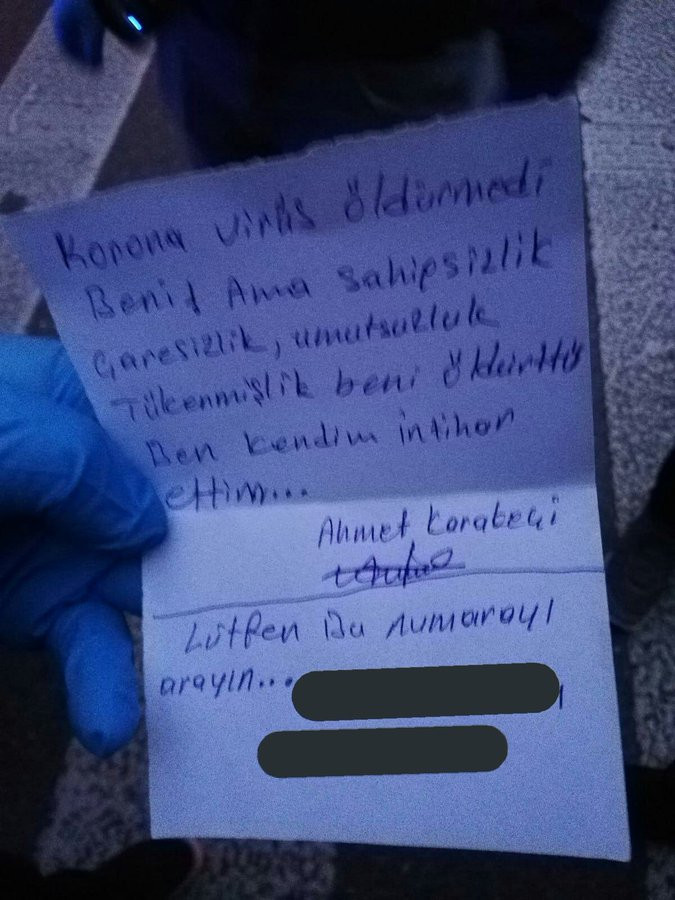 Korona virüs öldürmedi
Beni! Ama sahipsizlik
Çaresizlik, umutsuzluk
Tükenmişlik beni öldürttü
Ben kendim intihar
ettim...
Ahmet Karakeçi
Lütfen Bu numarayı
arayın...